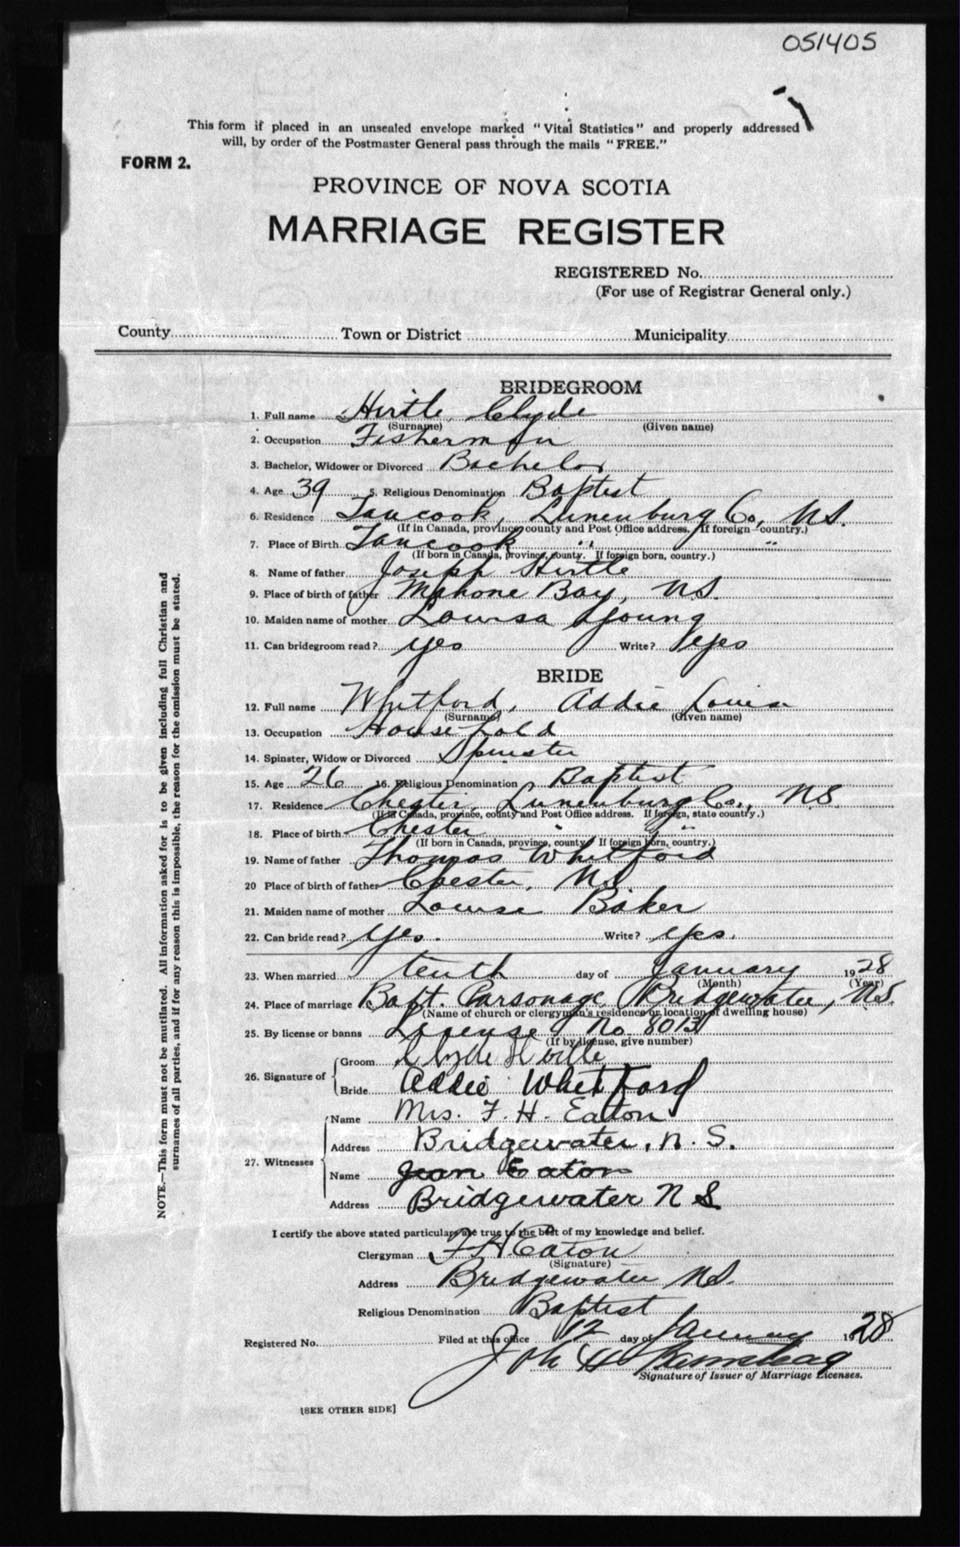 051405
This form if placed in an unsealed envelope marked "Vital Statistics" and properly addressed
will, by order of the Postmaster General pass through the mails "FREE."
FORM 2.
PROVINCE OF NOVA SCOTIA
MARRIAGE REGISTER
REGISTERED No.
(For use of Registrar General only.)
County Town or District Municipality
BRIDEGROOM
1. Full name Hirtle Clyde
(Surname) (Given name)
2. Occupation Fisherman
3. Bachelor, Widower or Divorced Bachelor
4. Age 39 5. Religious Denomination Baptist
6. Residence Tancook, Lunenburg Co, N.S.
(If in Canada, province, county and Post Office address, If foreign country.)
7. Place of Birth Tancook " "
(If born in Canada, province, county. If foreign born, country.)
8. Name of father Joseph Hirtle
9. Place of birth of father Mahone Bay, N.S.
10. Maiden name of mother Louisa Young
11. Can bridegroom read? yes Write? yes
BRIDE
12. Full name Whitford, Addie Louise
(Surname) (Given name)
13. Occupation Household
14. Spinster, Widow or Divorced Spinster
15. Age 26 16. Religious Denomination Baptist
17. Residence Chester, Lunenburg Co., N.S
(If in Canada, province, county and Post Office address. If foreign, state country.)
18. Place of birth Chester " "
(If born in Canada, province, county If foreign born, country.)
19. Name of father Thomas Whitford
20 Place of birth of father Chester, N.S
21. Maiden name of mother Louise Baker
22. Can bride read? yes. Write? yes.
23. When married tenth day of January 1928
(Month) (Year)
24. Place of marriage Bapt. Parsonage, Bridgewater, N.S.
(Name of church or clergyman's residence or location of dwelling house)
25. By license or banns License No 8013
(If by license, give number)
26. Signature of Groom Clyde Hirtle
Bride Addie Whitford
27. Witnesses Name Mrs. F. H. Eaton
Address Bridgewater, N. S.
Name Jean Eaton
Address Bridgewater N S
I certify the above stated particulars are true to the best of my knowledge and belief.
Clergyman F H Eaton
(Signature)
Address Bridgewater N.S.
Religious Denomination Baptist
Registered No. Filed at this office 12 day of January 1928
Signature of Issuer of Marriage Licenses.
[SEE OTHER SIDE]
NOTE.—This form must not be mutilated. All information asked for is to be given including full Christian and
surnames of all parties, and if for any reason this is impossible, the reason for the omission must be stated.